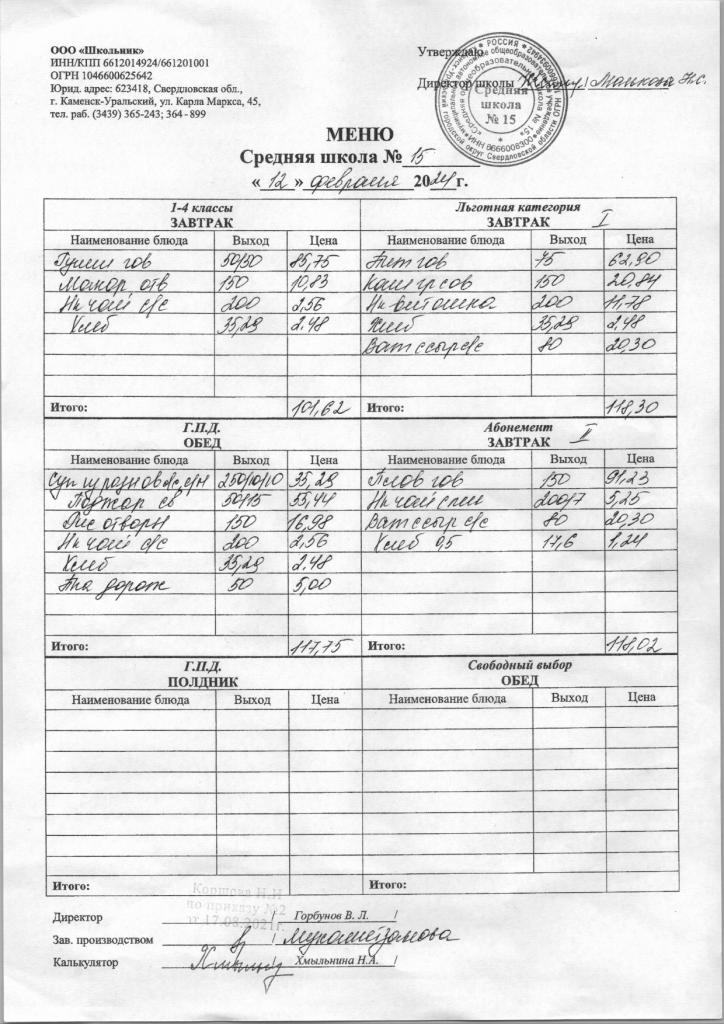 ООО «Школьник»
ИНН/КПП 6612014924/661201001
ОГРН 1046600625642
Юрид. адрес: 623418, Свердловская обл.,
г. Каменск-Уральский, ул. Карла Маркса, 45,
тел. раб. (3439) 365-243; 364 - 899
Утверждаю
Директор школы
Средняя школа № 15
МЕНЮ
Средняя школа № 15
« 12 » февраля 2024 г.
1-4 классы Льготная категория
ЗАВТРАК ЗАВТРАК I
Наименование блюда Выход Цена Наименование блюда Выход Цена
Гуляш гов 50/50 85,75 гов 75 62,90
Макар отв 150 10,83 150 20,84
Нк чай с/с 200 2,56 Нк-витошка 200 11,78
Хлеб 35,29 2.48 Хлеб 35,29 2,48
Ват с сыр с/с 80 20,30
Итого: 101,62 Итого: 118,30
Г.П.Д. Абонемент
ОБЕД ЗАВТРАК II
Наименование блюда Выход Цена Наименование блюда Выход Цена
Суп 250/10/10 35,29 Плов гов 150 91,23
Поджар св 50/15 55,44 Нк чай 200/7 5,25
Рис отварн 150 16,98 Ват с сыр с/с 80 20,30
Нк чай с/с 200 2,56 Хлеб 17,6 1,24
Хлеб 35,29 2.48
дорож 50 5,00
Итого: 117,75 Итого: 118,02
Г.П.Д. Свободный выбор
ПОЛДНИК ОБЕД
Наименование блюда Выход Цена Наименование блюда Выход Цена
Итого: Итого:
Коршова Н.Н
по приказу №2
от 17.08.2021г.
Директор / Горбунов В. Л. /
Зав. производством
Калькулятор / Хмыльнина Н.А. /